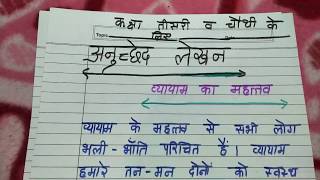 कक्षा तीसरी व चौथी के
लिए
अनुच्छेद लेखन
व्यायाम का महातव
व्यायाम के महातव से सभी लोग
भली-भाँति परिचित हैं। व्यायाम
हमारे तन-मन दोनों को स्वस्थ